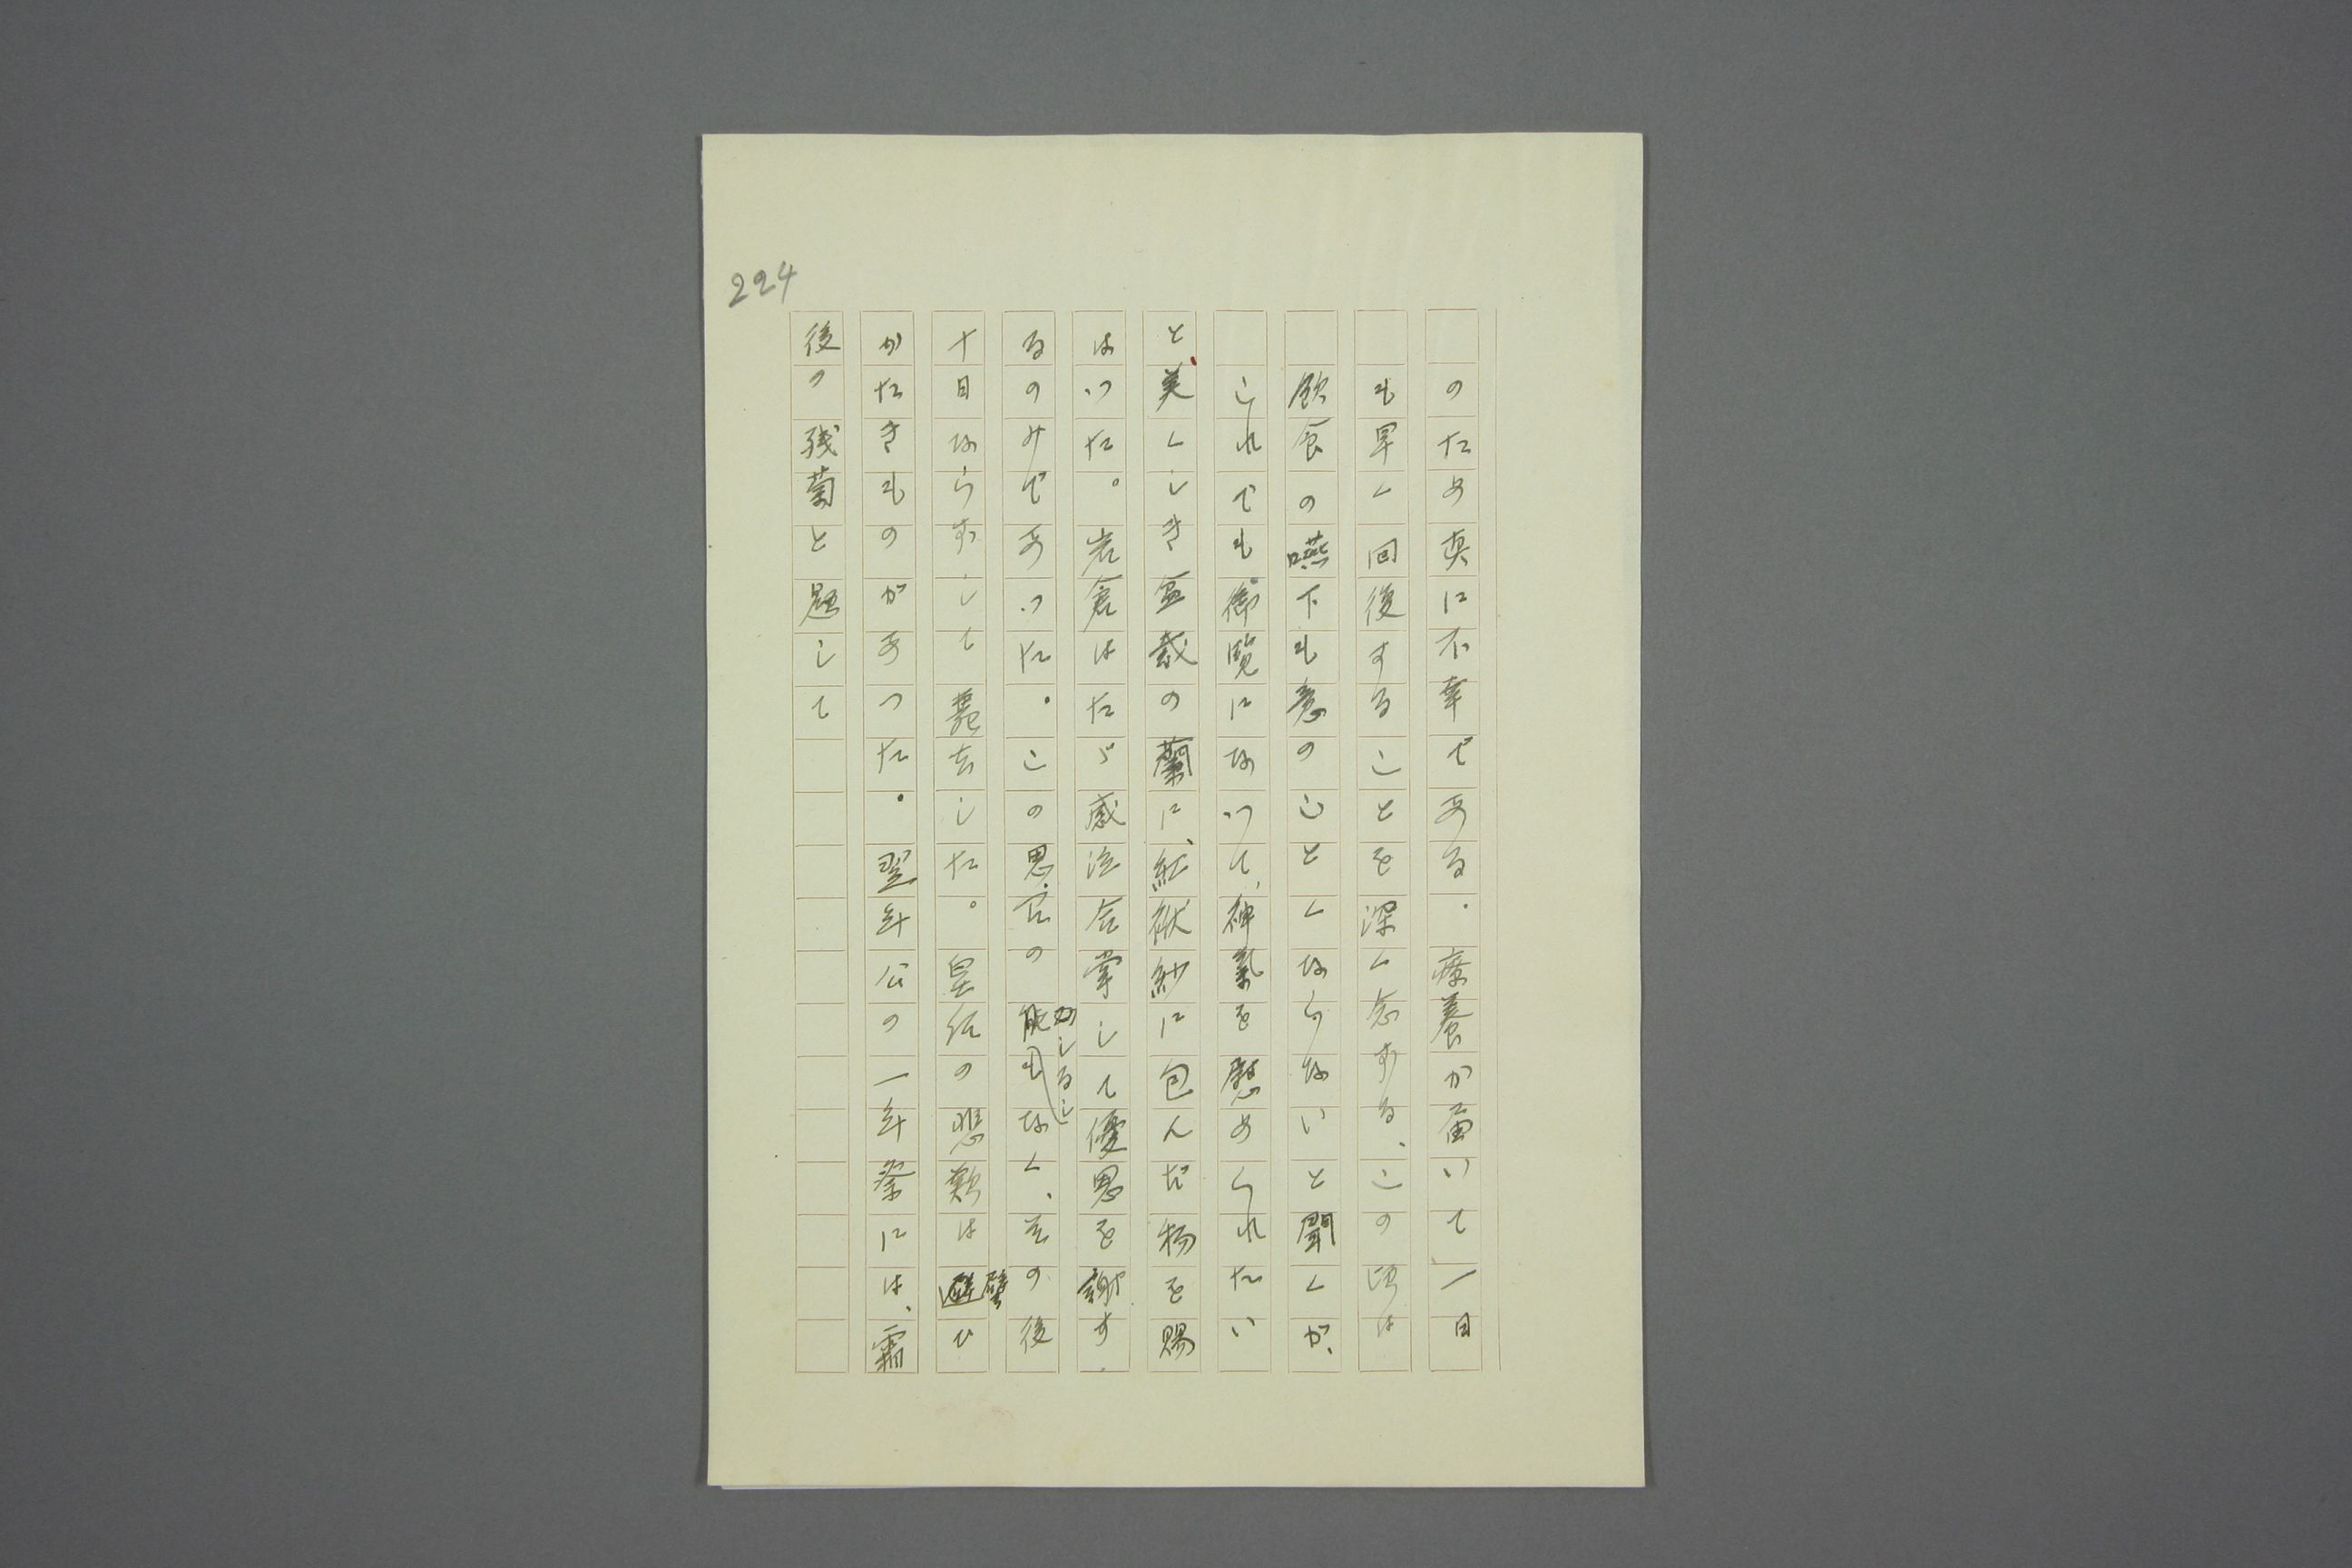 224
のため真に不幸である。療養が届いて一日
も早く回復することを深く念ずる、この頃は
飲食の嚥下も意のごとくならないと聞くが、
これでも御覧になつて、神気を慰めくれたい
と、美くしき盆栽の蘭に、紅袱紗に包んだ物を賜
はつた。岩倉はたゞ感泣合掌して優恩を謝す
るのみであつた。この恩召の
かしるし
もなく、其の後
十日ならずして薨去した。皇后の悲歎は
譬
ひ
がたきものがあつた。翌年公の一年祭には、霜
後の残菊と題して